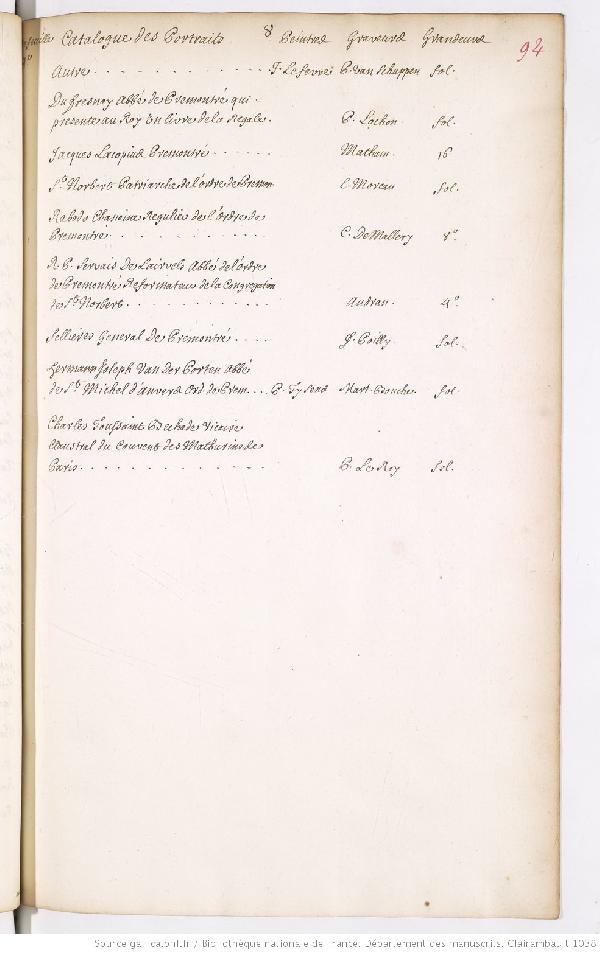 Catalogue des Portraits 8 Peintres Graveurs Grandeurs 94
Autre . . . . . . . . . . . J. Lefevre P. Van Schuppen fol.
Du fresnoy Abbé de Premontré qui
presente au Roy un livre de la Regale. P. Lochon fol.
Jacques Lacopius Premontré . . . . . . Matham 16
St. Norbert Patriarche de l'ordre de Premon C. Moreau fol.
Rabodo Chanoine Regulier de l'ordre de
Premontré . . . . . . . . . . C. De Mallery 8°.
R. P. Servais De Lairvels Abbé de l'ordre
de Premontré Reformateur de la Congregation
de St. Norbert . . . . . . . . . Audran 4°.
Sellieres General De Premontré . . . . J. Poilly fol.
Hermann Joseph Van der Porten Abbé
de St. Michel d'anvers Ord. de Prem. . . P. Tysens Mart. Bouche fol.
Charles Toussaint Duchode Vicaire
Claustral du Couvent des Mathurins de
Paris . . . . . . . . . . . . P. Le Roy fol.
Source gallica.bnf.fr / Bibliothèque nationale de France. Département des manuscrits. Clairambault 1038